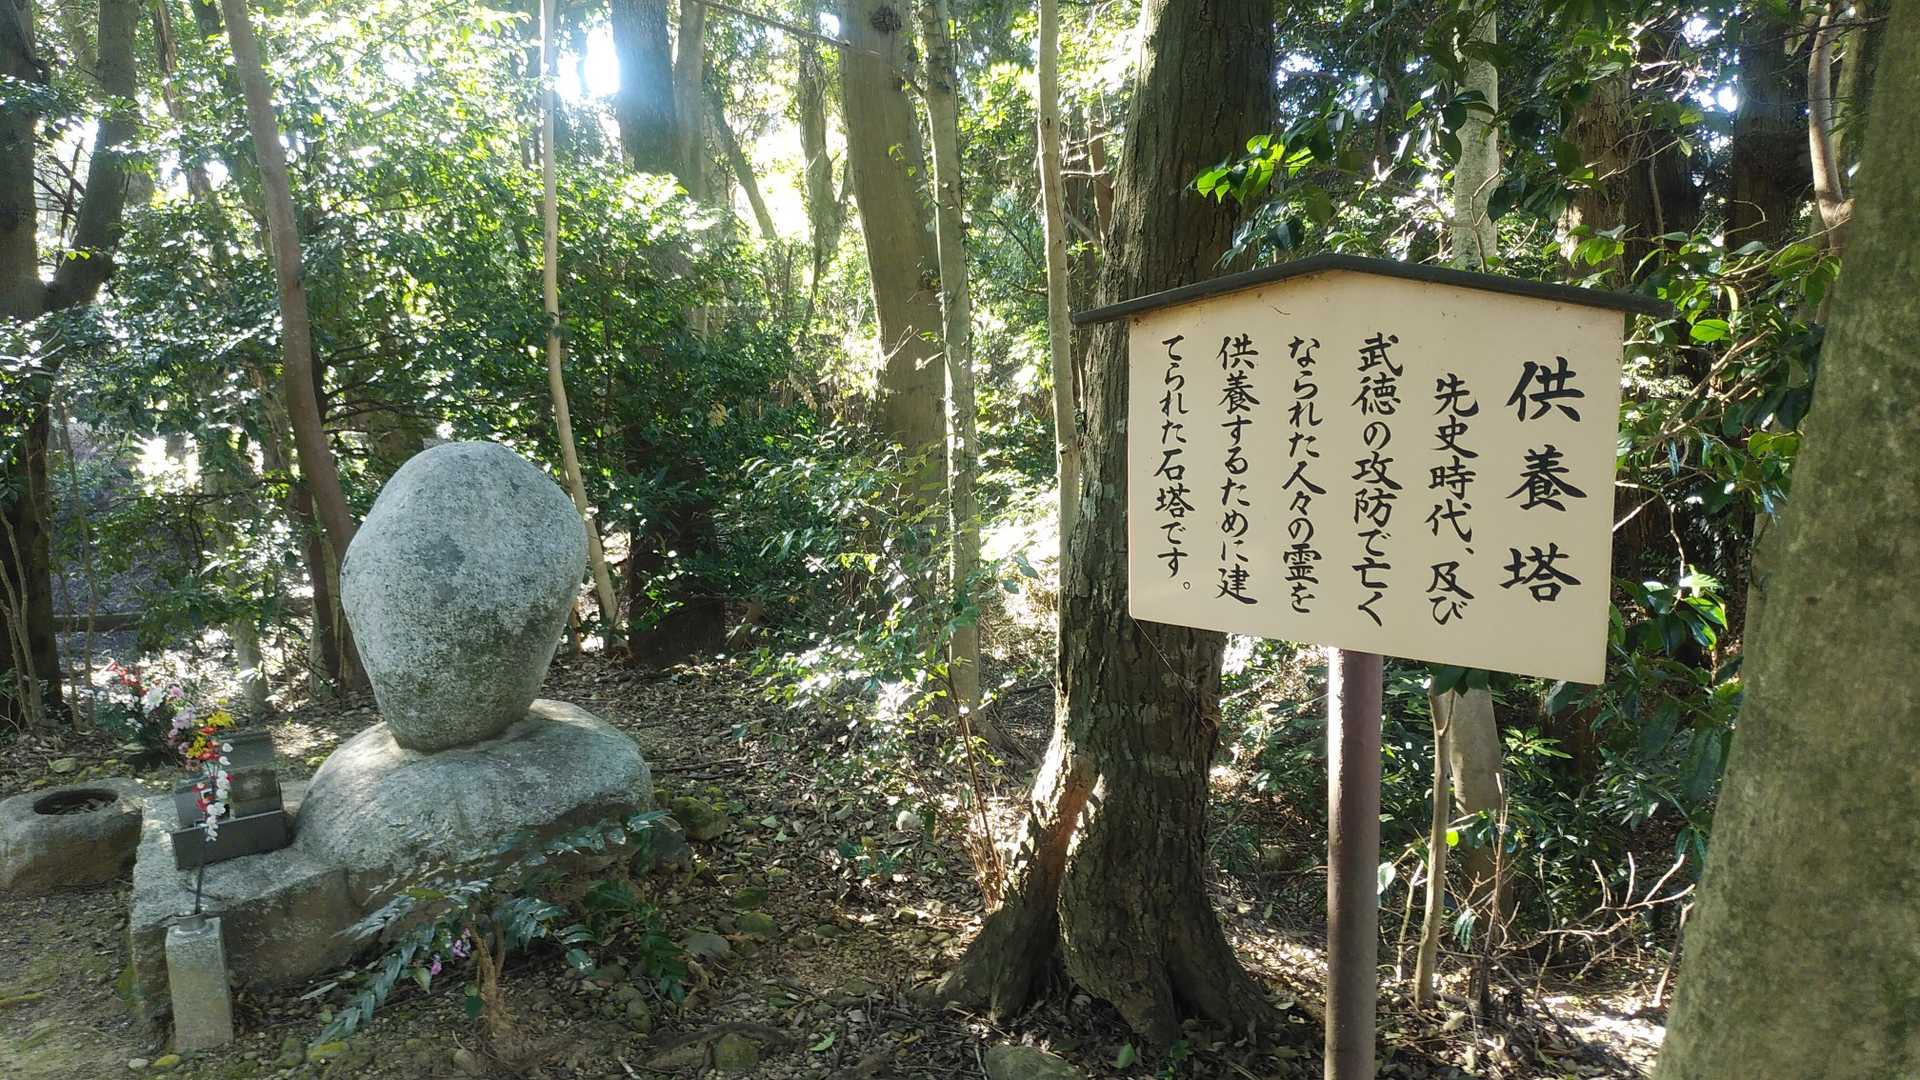 供養塔
先史時代、及び
武徳の攻防で亡く
なられた人々の霊を
供養するために建
てられた石塔です。